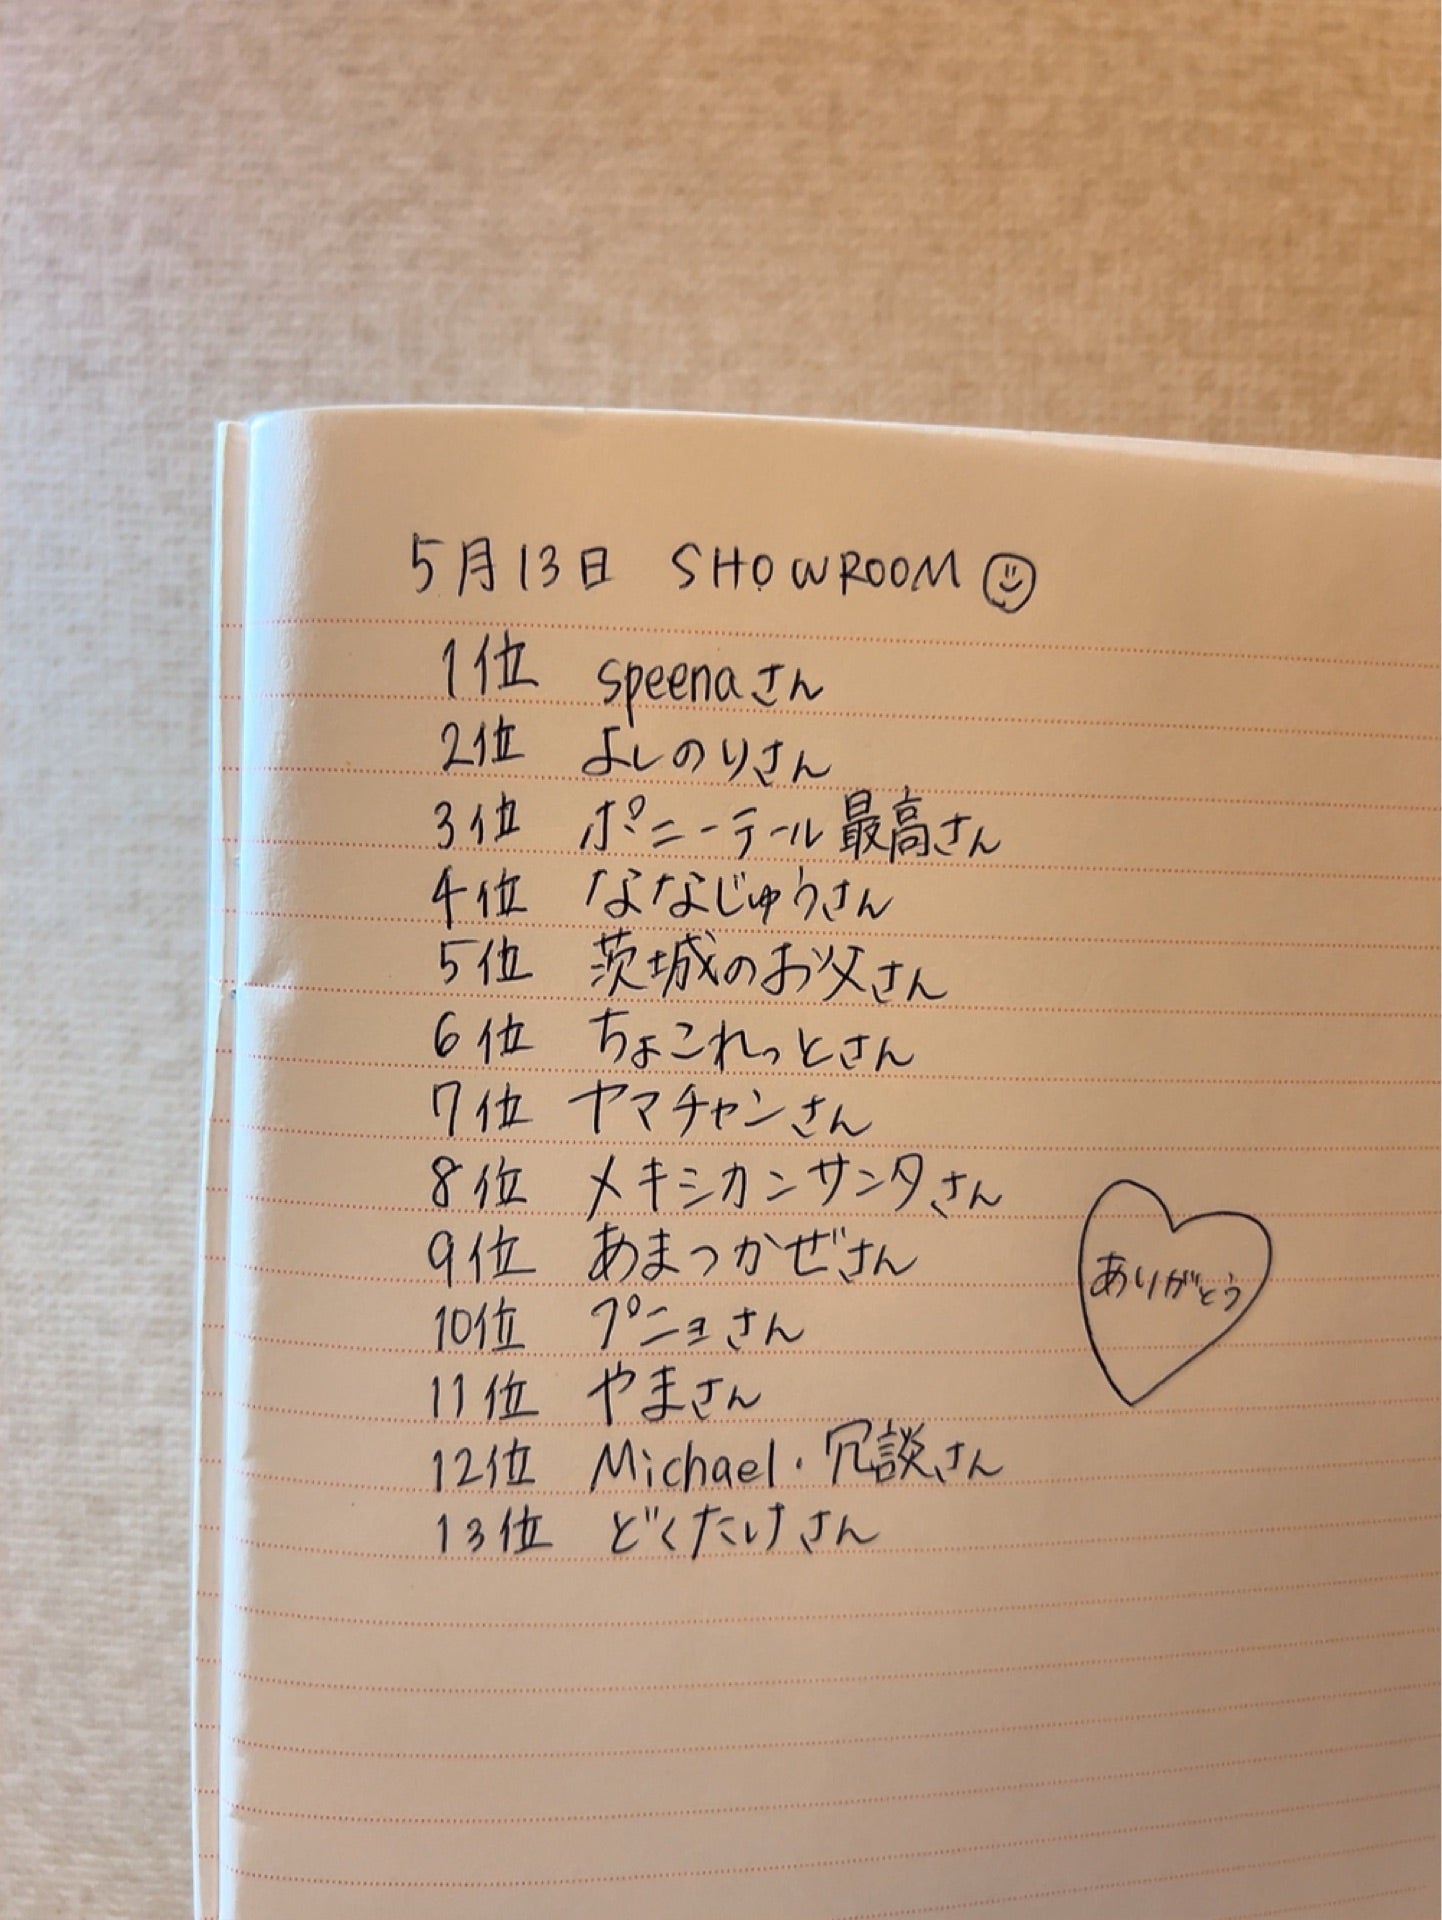 5月13日 SHOWROOM
1位 speenaさん
2位 よしのりさん
3位 ポニーテール最高さん
4位 ななじゅうさん
5位 茨城のお父さん
6位 ちょこれっとさん
7位 ヤマチャンさん
8位 メキシカンサンタさん
9位 あまつかぜさん
10位 プニョさん
11位 やまさん
12位 Michael・冗談さん
13位 どくたけさん
ありがとう